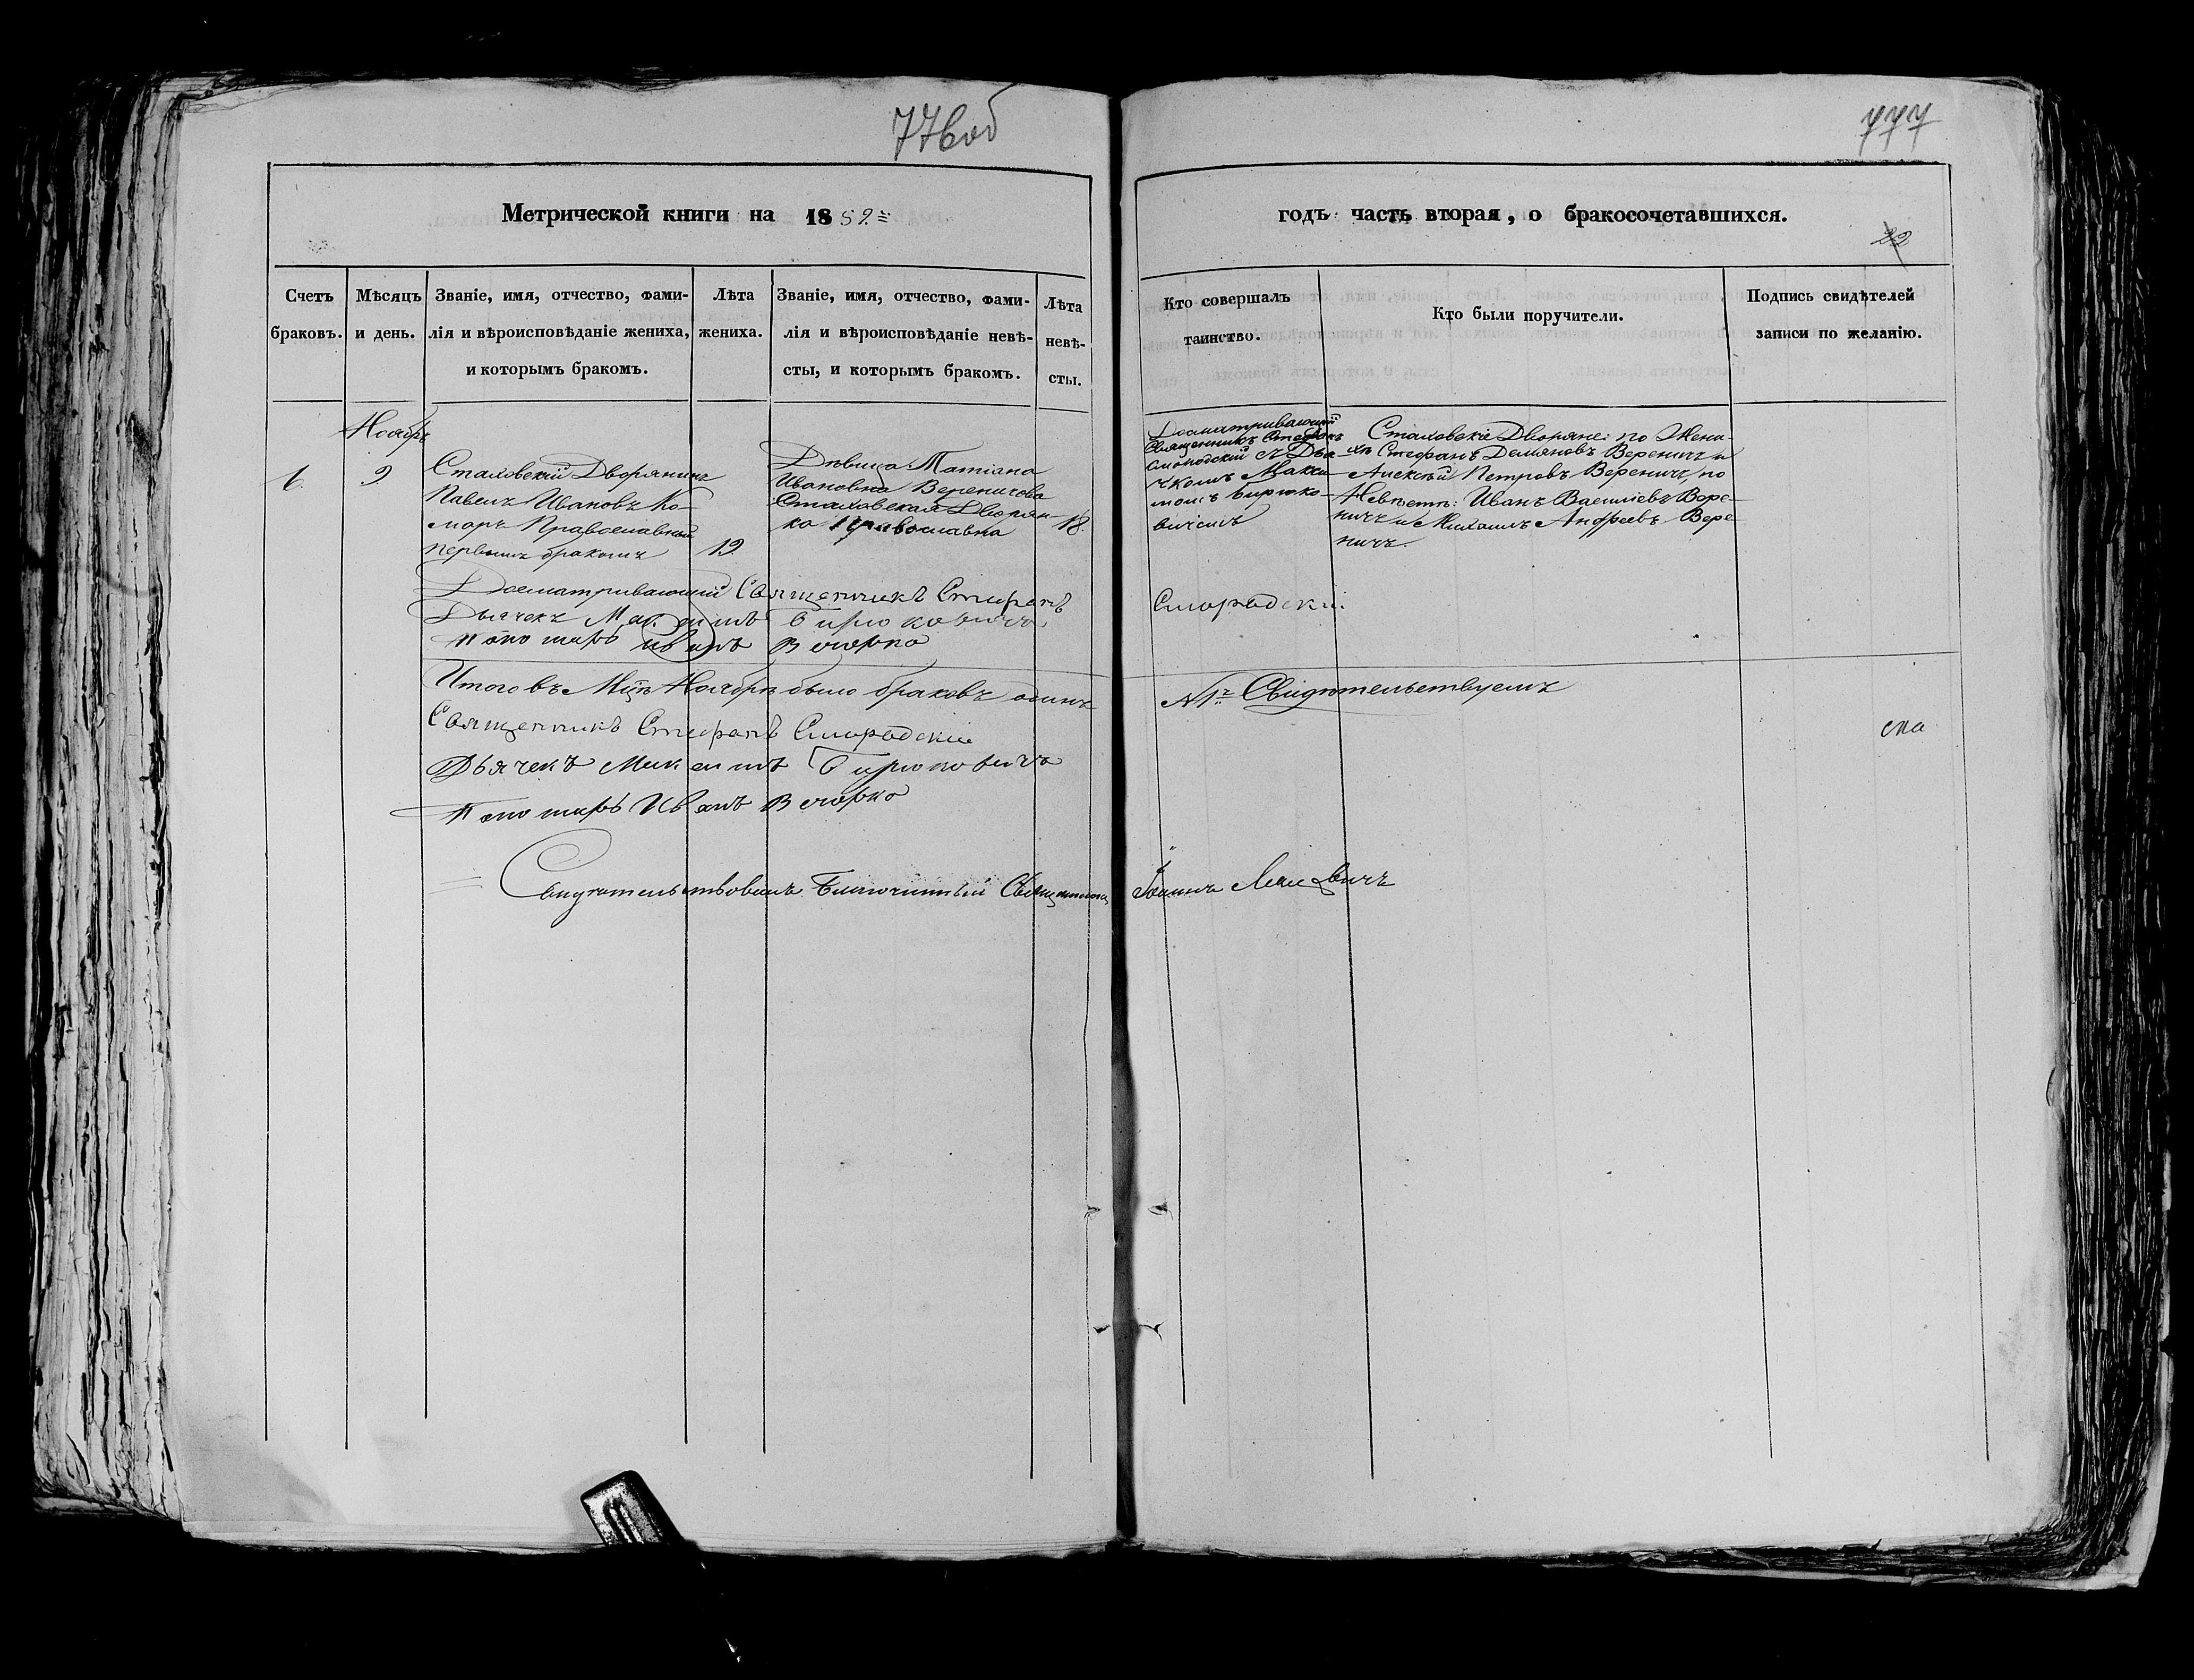 776 об
777
Метрической книги на 1852 =
годъ часть вторая, о бракосочетавшихся.
22
Счетъ
браковъ.
Мѣсяцъ
и день.
Званіе, имя, отчество, фами-
лія и вѣроисповѣданіе жениха,
и которымъ бракомъ.
Лѣта
жениха.
Званіе, имя, отчество, фами-
лія и вѣроисповѣданіе невѣ-
сты, и которымъ бракомъ.
Лѣта
невѣ-
сты.
Кто совершалъ
таинство.
Кто были поручители.
Подпись свидѣтелей
записи по желанію.
Ноябрь
1.
9
Стаховскій Дворянинъ
Павелъ Ивановъ Ко-
маръ Православный
первымъ бракомъ
19.
Дѣвица Татіана
Ивановна Вереничова
Стаховская Дворян-
ка Православна
18.
Досматривающій
Священникъ Стефанъ
Смородскій съ Дья-
чкомъ Макси-
момъ Бирюко-
вичемъ
Стаховскіе Дворяне: по Жени-
хѣ Стефанъ Демяновъ Вереничъ и
Алексѣй Петровъ Вереничъ, по
Невѣстѣ: Иванъ Василіевъ Вере-
ничъ и Михаилъ Андреевъ Вере-
ничъ.
Досматривающій Священникъ Стефанъ
Смородскій.
Дьячекъ Максимъ Бирюковичъ
Пономарь Иванъ Вечорко
Итого въ Мцѣ Ноябрѣ было браковъ одинъ
№ 1й Свидѣтельствуемъ
Священникъ Стефанъ Смородскій
ска
Дьячекъ Максимъ Бирюковичъ
Пономарь Иванъ Вечорко
= Свидѣтельствовалъ Благочинный Священникъ Іоаннъ